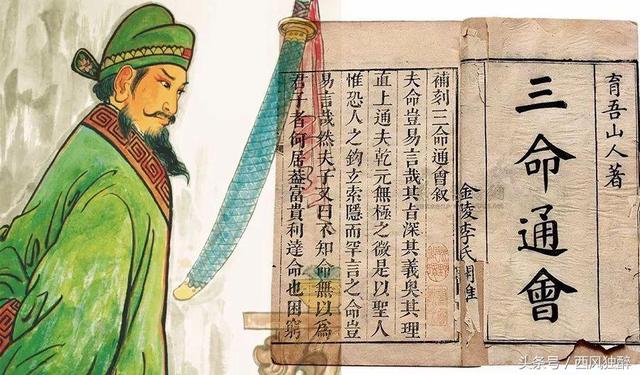 育吾山人著
三命通會
金陵李氏
補刻三命通會叙
夫命豈易言哉其旨深其義奥其理
直上通夫乾元無極之微是以聖人
惟恐人之鉤玄索隱而罕言之命豈
易言哉然夫子又曰不知命無以為
君子者何居葢富貴利達命也困窮
头条号／西风独醉